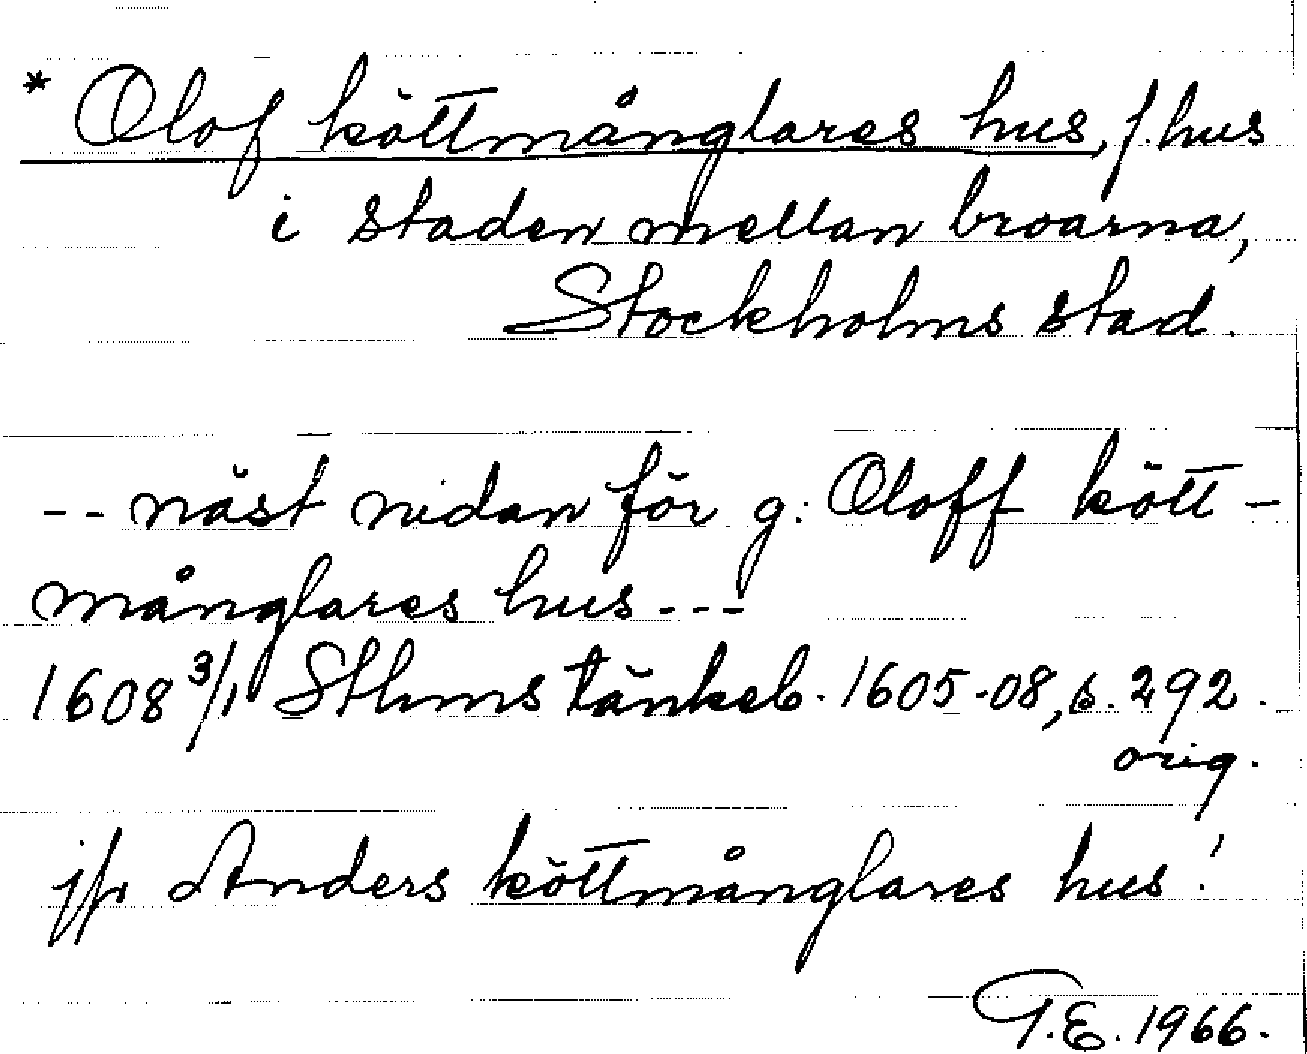 * Olof köttmånglares hus, f. hus
i staden mellan broarna,
Stockholms stad.
-- näst nidan för g: Oloff kött-
månglares hus ---
1608 3/1 Sthms tänkeb. 1605-08, s. 292.
orig.
jfr Anders köttmånglares hus!
G.E. 1966.